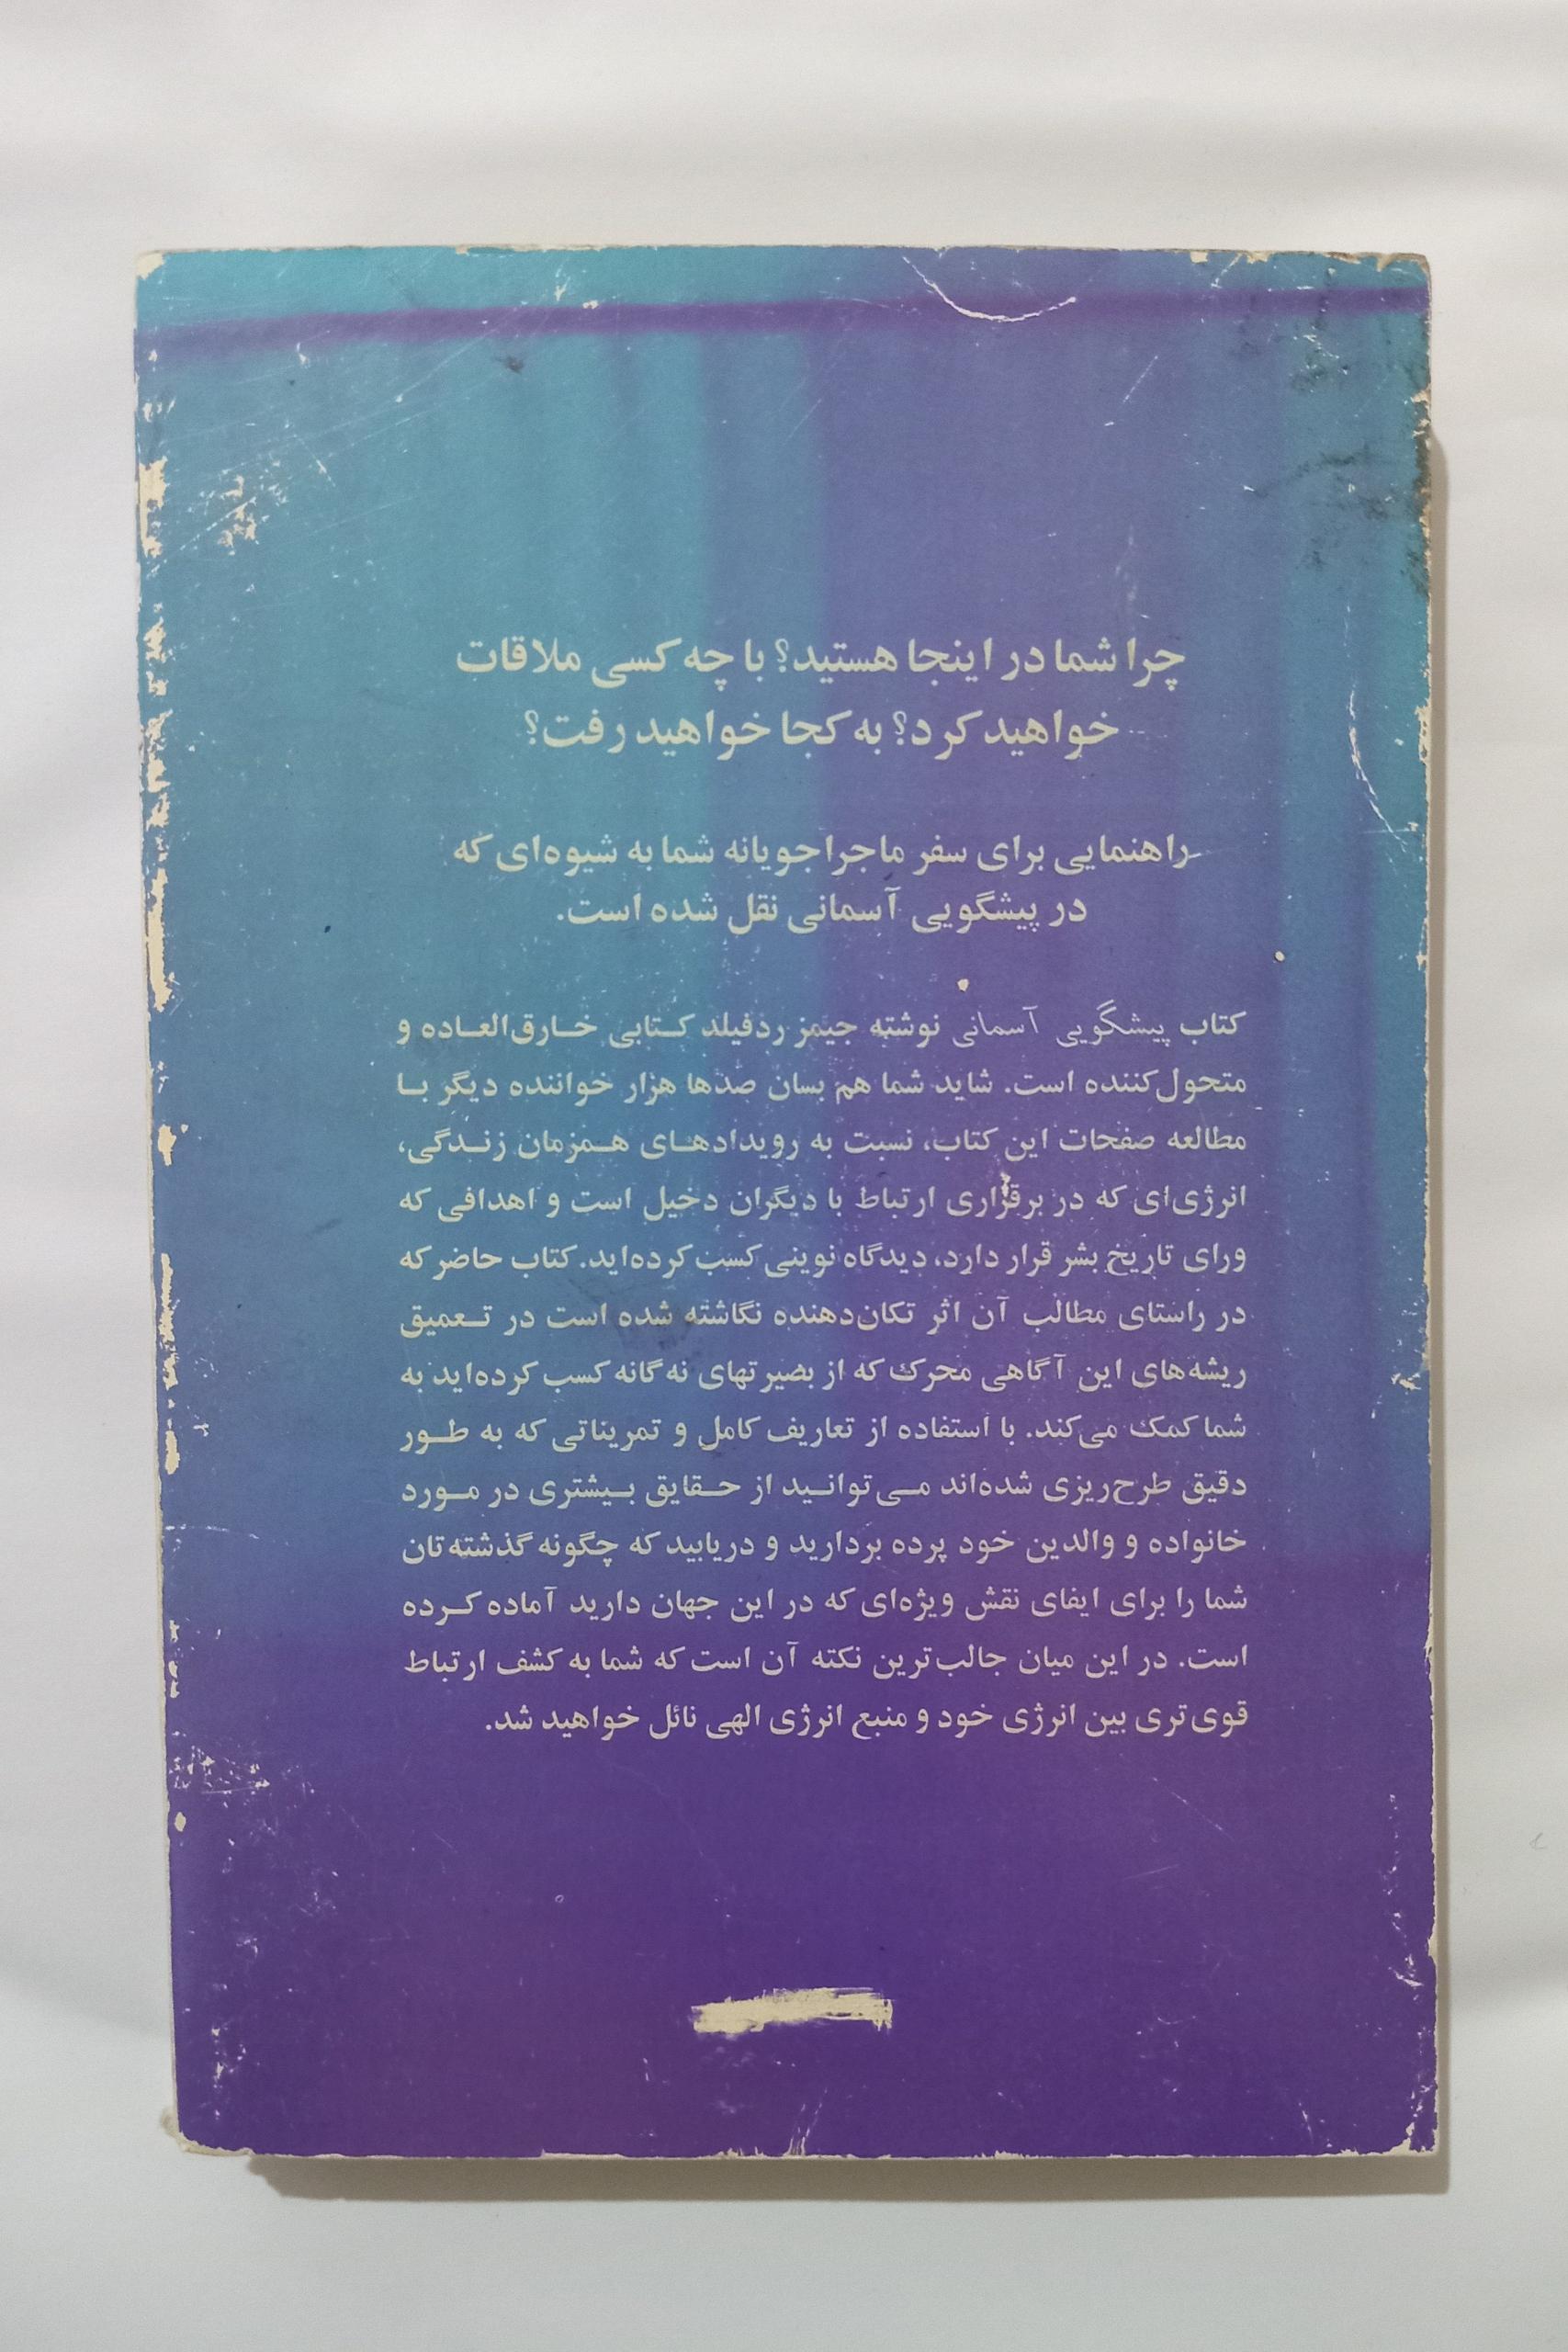 چرا شما در اینجا هستید؟ با چه کسی ملاقات
خواهید کرد؟ به کجا خواهید رفت؟
راهنمایی برای سفر ماجراجویانه شما به شیوه‌ای که
در پیشگویی آسمانی نقل شده است.
کتاب پیشگویی آسمانی نوشته جیمز ردفیلد کتابی خارق‌العاده و
متحول‌کننده است. شاید شما هم بسان صدها هزار خواننده دیگر با
مطالعه صفحات این کتاب، نسبت به رویدادهای همزمان زندگی،
انرژی‌ای که در برقراری ارتباط با دیگران دخیل است و اهدافی که
ورای تاریخ بشر قرار دارد، دیدگاه نوینی کسب کرده‌اید. کتاب حاضر که
در راستای مطالب آن اثر تکان‌دهنده نگاشته شده است در تعمیق
ریشه‌های این آگاهی محرک که از بصیرتهای نه‌گانه کسب کرده‌اید به
شما کمک می‌کند. با استفاده از تعاریف کامل و تمریناتی که به طور
دقیق طرح‌ریزی شده‌اند می‌توانید از حقایق بیشتری در مورد
خانواده و والدین خود پرده بردارید و دریابید که چگونه گذشته‌تان
شما را برای ایفای نقش ویژه‌ای که در این جهان دارید آماده کرده
است. در این میان جالب‌ترین نکته آن است که شما به کشف ارتباط
قوی‌تری بین انرژی خود و منبع انرژی الهی نائل خواهید شد.